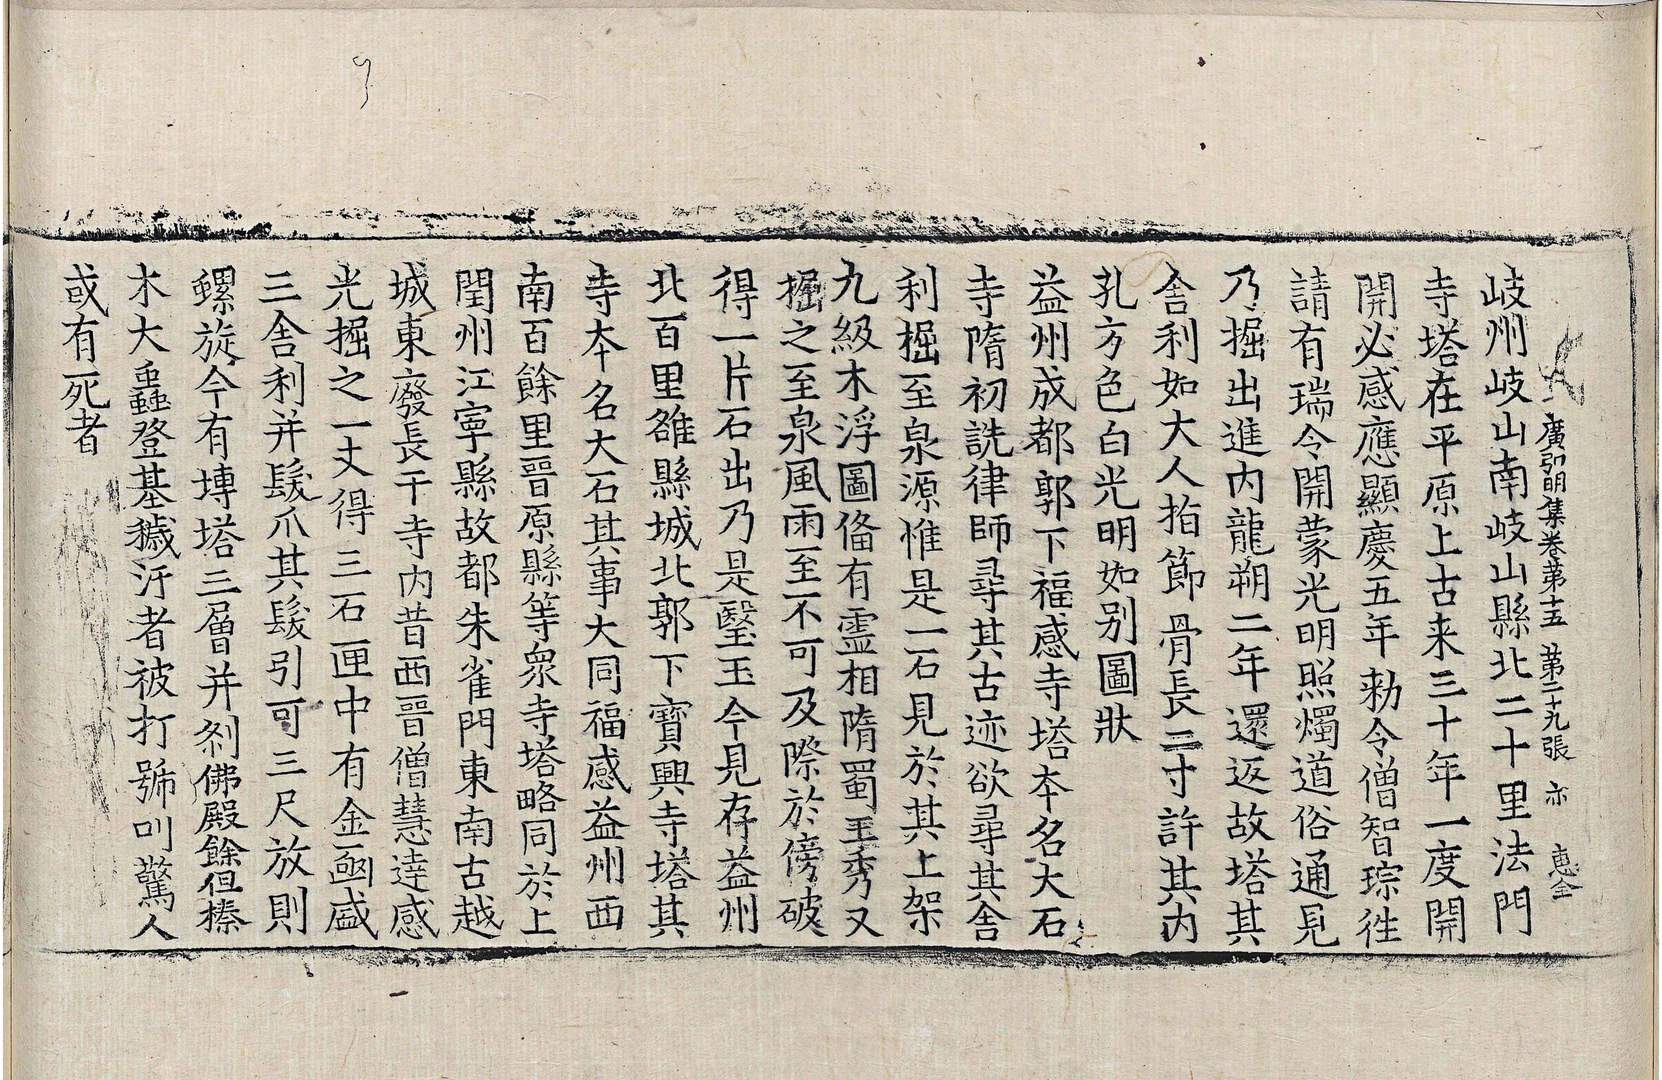 廣弘明集卷第十五 第二十九張 亦 惠金
岐州岐山南岐山縣北二十里法門
寺塔在平原上古来三十年一度開
開必感應顯慶五年勑令僧智琮徃
請有瑞令開蒙光明照燭道俗通見
乃掘出進内龍朔二年還返故塔其
舎利如大人指節骨長二寸許其内
孔方色白光明如别圖狀
益州成都郭下福感寺塔夲名大石
寺隋初詵律師尋其古迹欲尋其舎
利掘至泉源惟是一石見於其上架
九級木浮圖俻有靈相隋蜀王秀又
掘之至泉風雨一至不可及際於傍破
得一片石出乃是瑿玉今見存益州
北百里雒縣城北郭下寶興寺塔其
寺夲名大石其事大同福感益州西
南百餘里晉原縣等衆寺塔略同於上
閏州江寜縣故都朱雀門東南古越
城東廢長干寺内昔西晉僧慧達感
光掘之一丈得三石匣中有金凾盛
三舎利并髮爪其髮引可三尺放則
螺旋今有塼塔三層并刹佛殿餘但榛
木大蟲登基穢汙者被打號叫驚人
或有死者